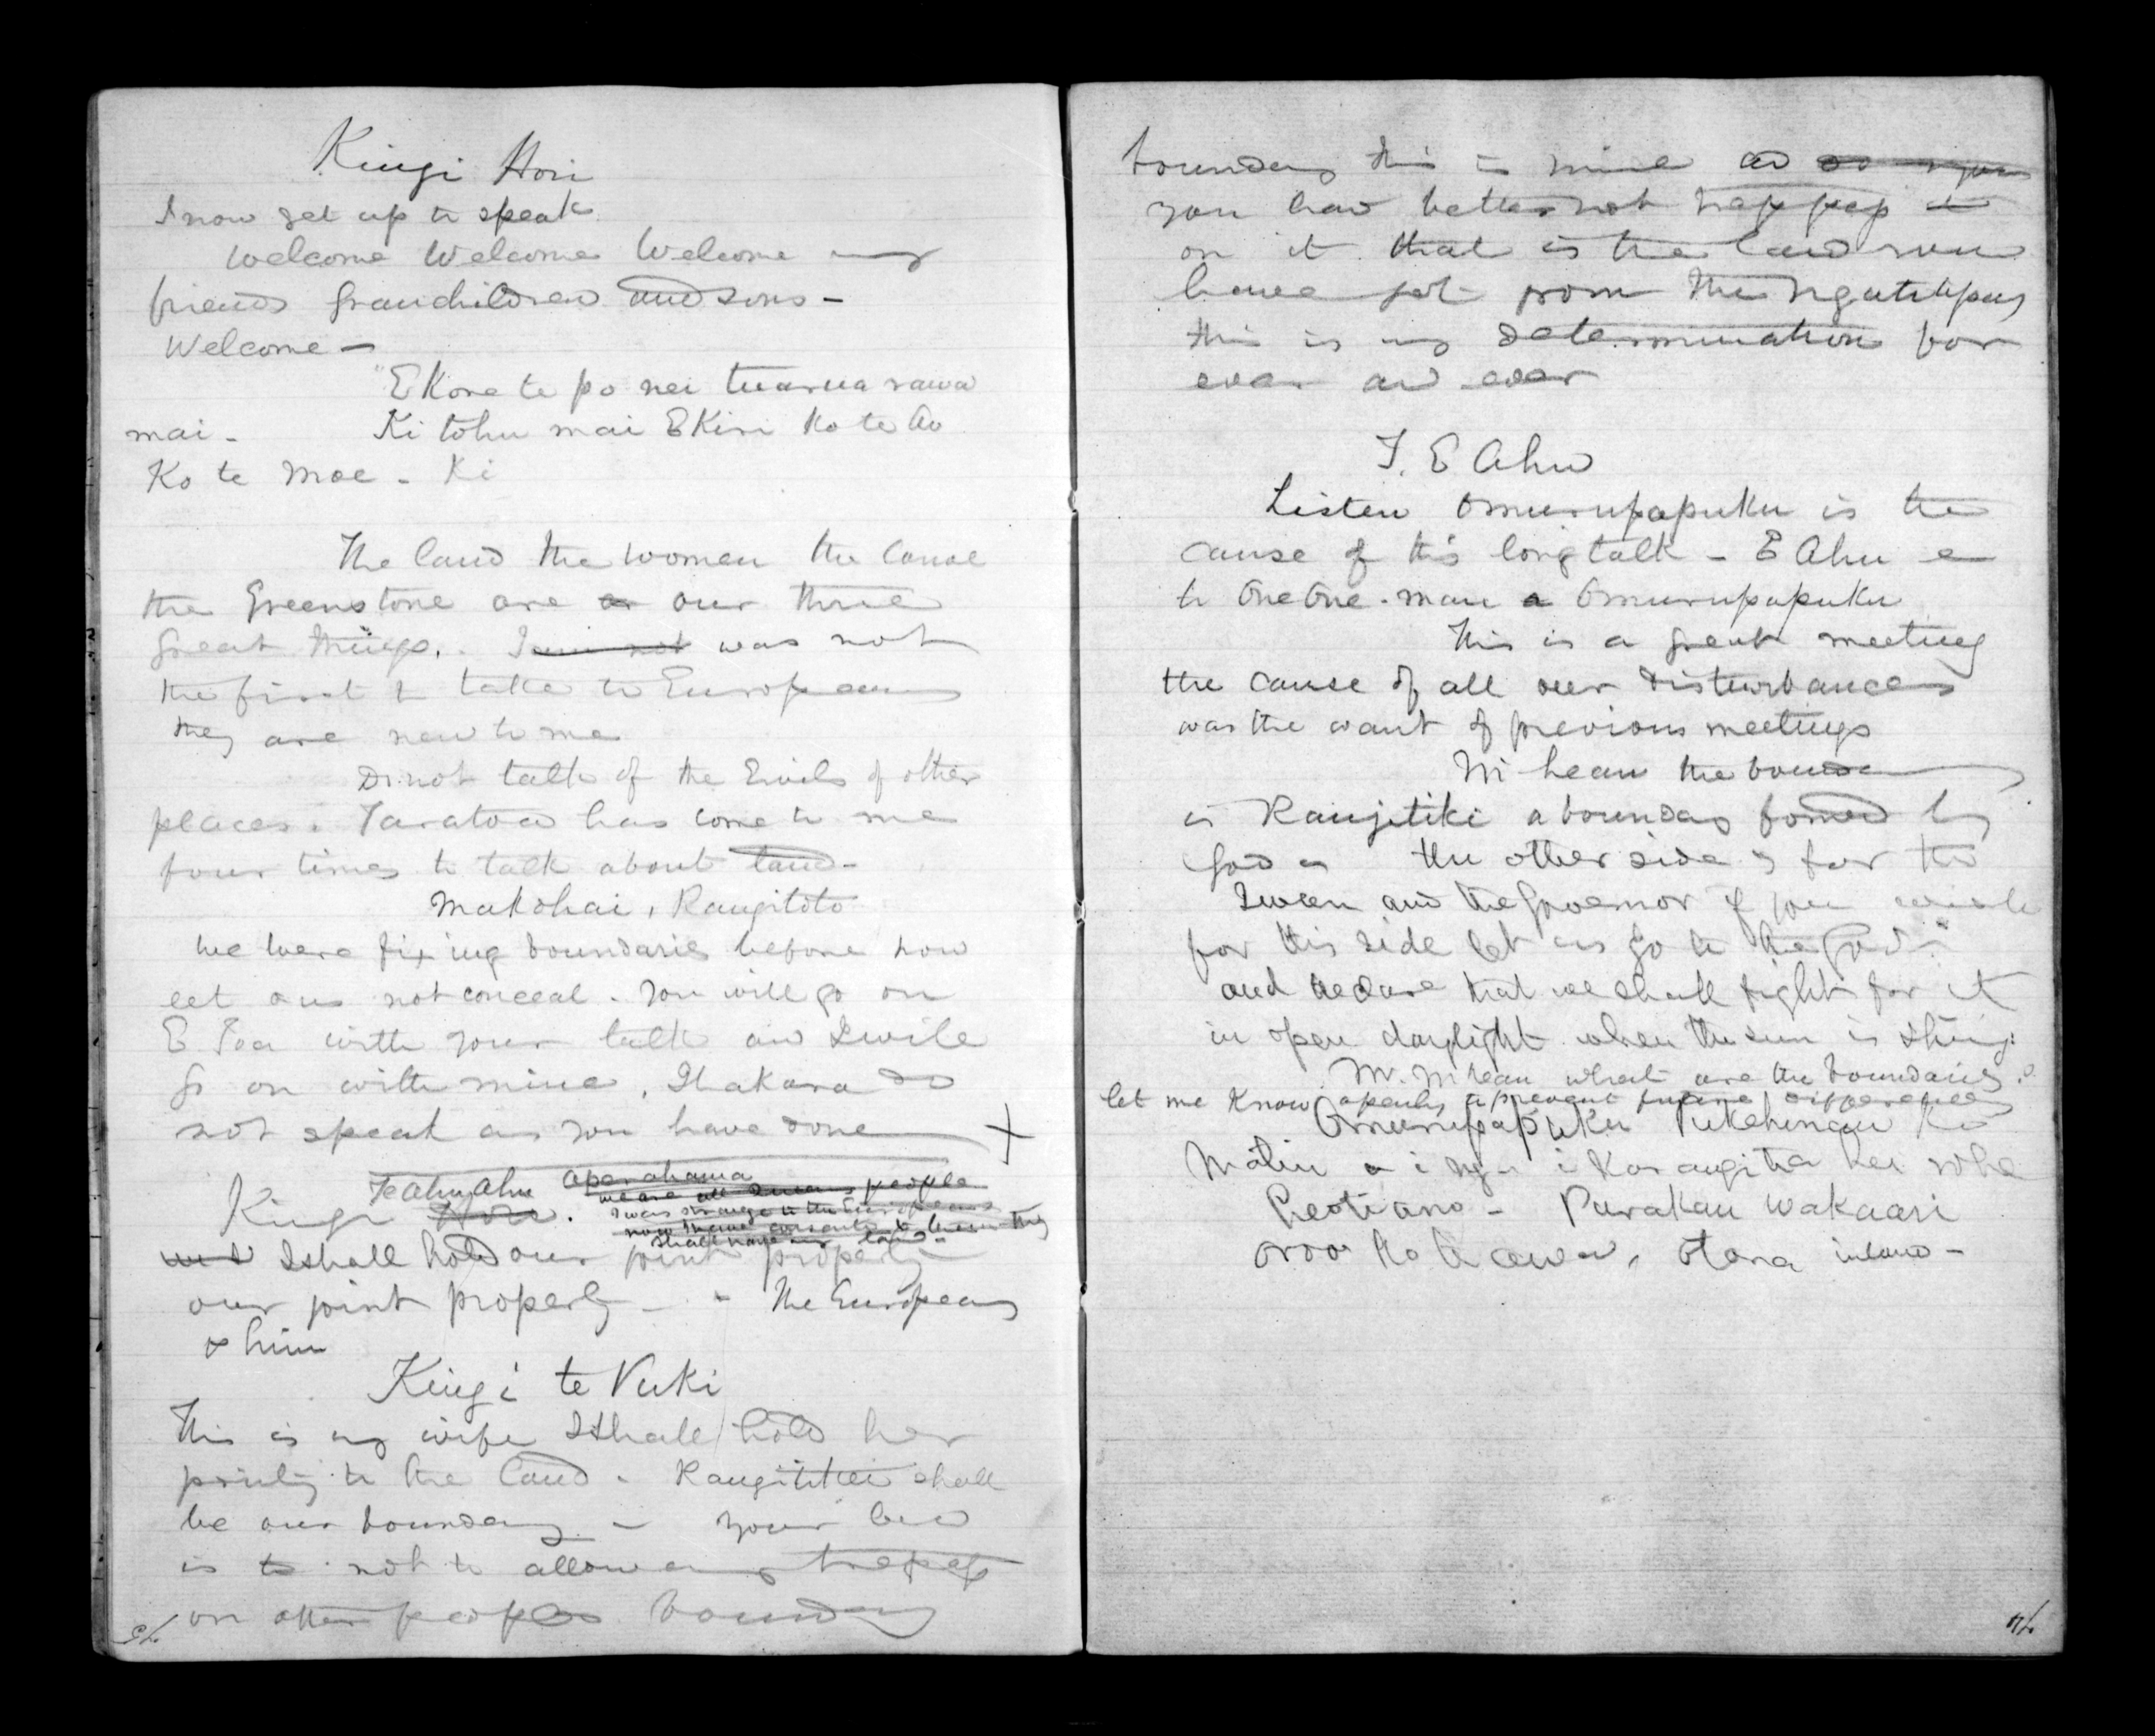 Kingi Hori
I now get up to speak
Welcome Welcome Welcome my
friends Grandchildren and sons -
Welcome -
"E Kore te po nei tuarua rawa
mai - Ki tohu mai E Kiri Ko te Ao
Ko te Moe - Ki
The land the women the Canoe
the Greenstone are or our three
great things. I am not was not
the first to take to Europeans
they are new to me
Do not talk of the Evils of other
places. Taratoa has come to me
four times to talk about land -
Makohai, Rangitoto
We were fixing boundaries before now
let us not conceal. You will go on
E Toa with your talk and I will
go on with mine. Ihakara do
not speak as you have done
Te Ahu Ahu Aperahama
we are all Queens people
Kingi Hori. I was strange to the Europeans
now I have consented to them they
shall have my land -
I shall hold our joint property
our joint property - - The Europeans
& him
Kingi te Vuki
This is my wife I shall hold her
pointing to the land - Rangitikei shall
be our boundary - your law
is to not to allow any trespass
on other peoples boundary
75
boundary this is mine and so
you had better not trespass
on it that is the land you
have got from the Ngatiapa
this is my determination for
ever and ever
T. E Ahu
Listen Omurupapuku is the
cause of this long talk - E Ahu
te One One. man a Omurupapuku
This is a great meeting
the cause of all our disturbances
was the want of previous meetings
McLean the boundary
is Rangitiki a boundary formed by
God the other side is for the
Queen and the Governor if you wish
for this side let us go to the God
and declare that we shall fight for it
in open daylight when the sun is shing.
Mr. McLean what are the boundaries.
let me Know openly to prevent future differences
Omurupapuku Pukehinau Ko
Purakau Wakaari
Otara inland -
74